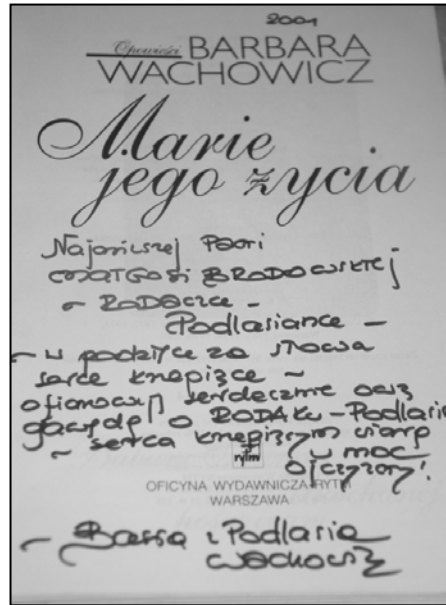 2001
Opowieści BARBARA
WACHOWICZ
Marie
jego życia
Najmilszej Pani
MAŁGOSI BRODOWSKIEJ
~ RODACZCE -
Podlasiance -
~ w podzięce za słowa
serce krzepiące ~
ofiarowuję serdecznie
gawędę o RODAKU - Podlasia
~ serca krzepiącym wiarą
w moc
rytm
Ojczyzny!
OFICYNA WYDAWNICZA RYTM
WARSZAWA
~ Basia z Podlasia
Wachowicz